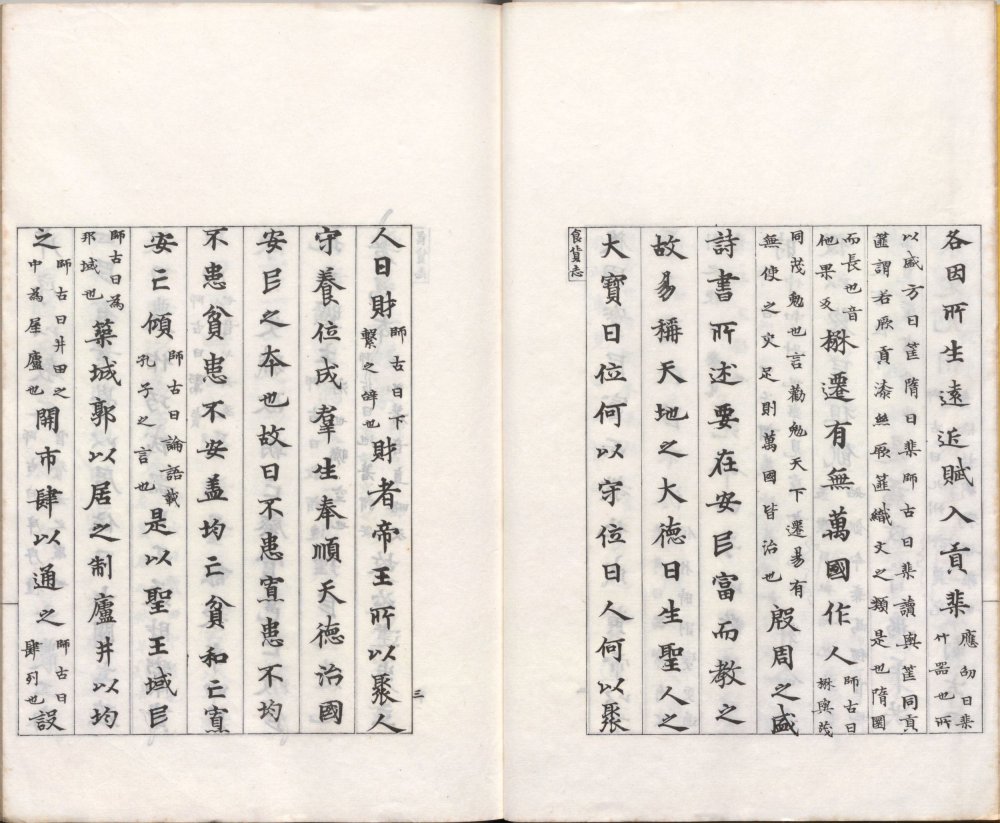 各因所生遠近賦入貢棐應劭曰棐
竹器也所
以盛方曰筐隋曰棐師古曰棐讀與筐同貢
篚謂若厥貢漆絲厥篚織文之類是也隋圜
而長也音
他果反
楙遷有無萬國作人師古曰
楙與茂
同茂勉也言勸勉天下遷易有
無使之交足則萬國皆治也
殷周之盛
詩書所述要在安民富而教之
故易稱天地之大德曰生聖人之
大寶曰位何以守位曰人何以聚
食貨志
人曰財師古曰下
繫之辞也
財者帝王所以聚人
守養位成羣生奉順天德治國
安民之本也故曰不患寡患不均
不患貧患不安盖均亡貧和亡寡
安亡傾師古曰論語載
孔子之言也
是以聖王域民
師古曰為
邦域也
築城郭以居之制廬井以均
之師古曰井田之
中為屋廬也
開市肆以通之師古曰
肆列也
設
三